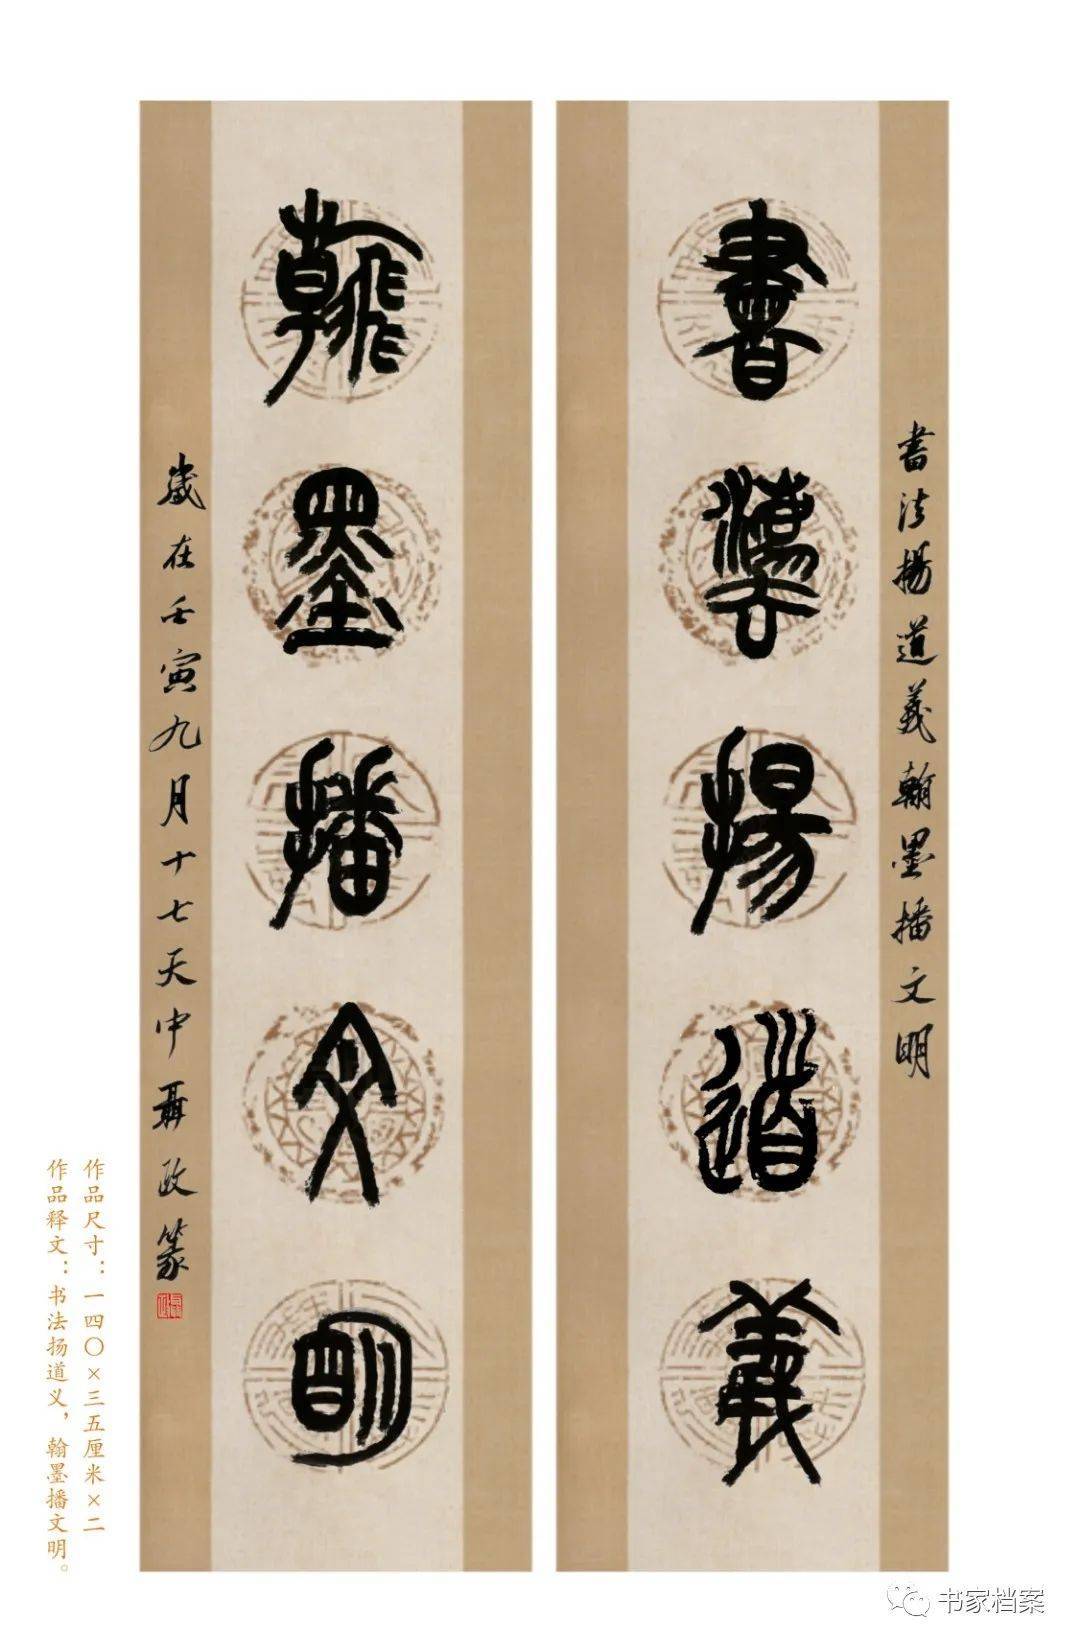 書灋揚道義
書法揚道義翰墨播文明
翰墨播文明
歲在壬寅九月十七天中聶政篆
作品尺寸：一四〇×三五厘米×二
作品释文：书法扬道义，翰墨播文明。
书家档案